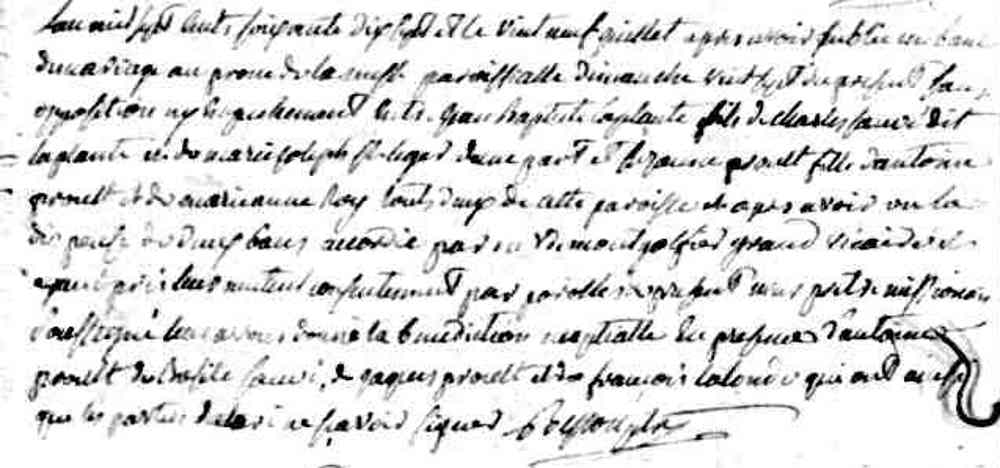 Lan mil sept cents soixante dix sept et le vint neuf juillet apres avoir publié un banc
de mariage au prone de la messe paroissialle dimanche vint sept du present sans
opposition ny enpechement entre jean baptiste laplante fils de charles sauvé dit
laplante et de marie joseph st leger dune part et suzanne proult fille dantoine
proult et de marieanne Roy touts deux de cette paroisse et apres avoir vu la
dispense de deux bans accordée par mr de montgolfier grand vicaire
apres avoir pris leur mutuel consentement par parolles de present nous pretre missionaire
soussigné leur avons donné la benediction nuptialle en presence dantoine
proult de basile sauvé, de jaques proult et de francois lalonde qui ont ainsi
que les parties declaré ne savoir signer